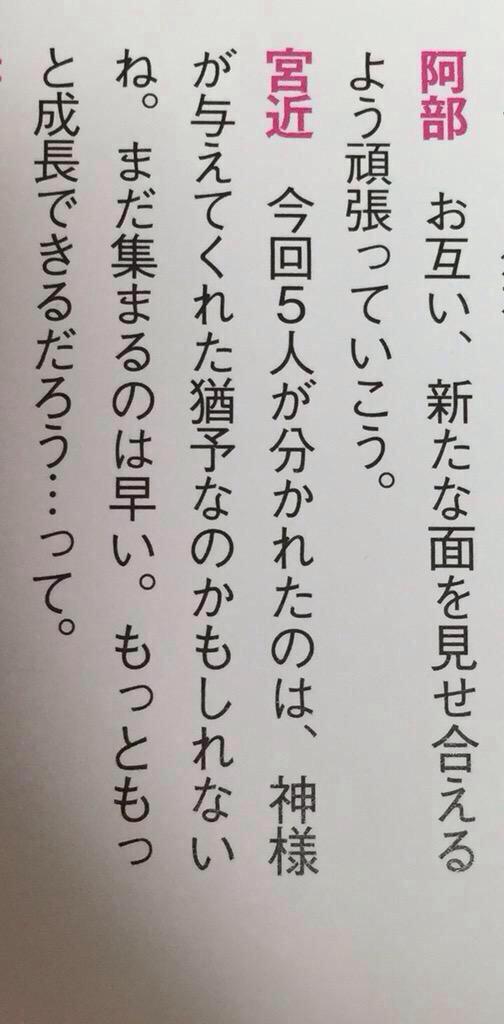 阿部　お互い、新たな面を見せ合える
よう頑張っていこう。
宮近　今回5人が分かれたのは、神様
が与えてくれた猶予なのかもしれない
ね。まだ集まるのは早い。もっともっ
と成長できるだろう…って。